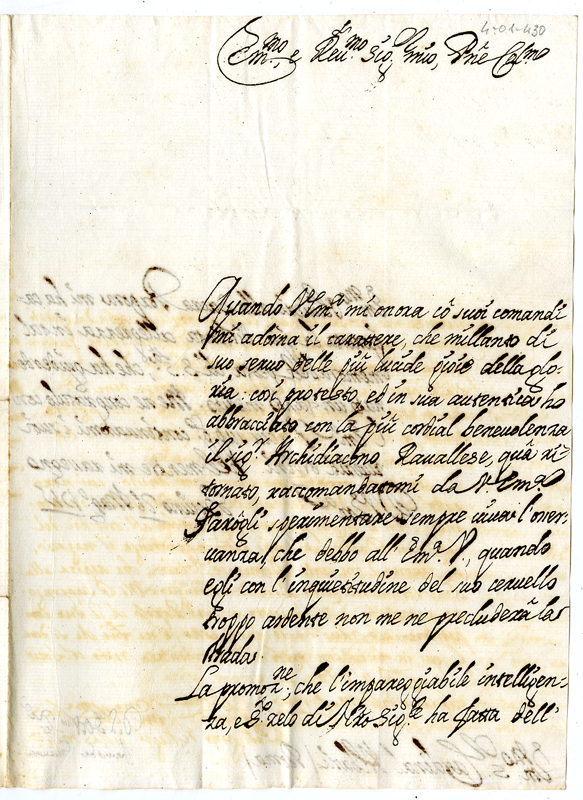 4-01-430
Em.mo e Reu.mo Sig.r mio, Pne Col.mo
Quando V. Em.a mi onora cō suoi comandi
mi adorna il carattere, che millanto di
suo seruo delle più lucide gioie della glo-
ria: così protesto, ed in sua autentica ho
abbracciato con la più cordial beneuolenza
il sig.r Archidiacono Rauallese, quà ri-
tornato, raccomandatomi da V. Em.a
Farogli sperimentare sempre uiua l'osser-
uanza, che debbo all'Em.a V., quando
egli con l'inquietitudine del suo ceruello
troppo ardente non me ne precluderà la
strada.
La promoz.ne, che l'impareggiabile intelligen-
za, e zelo di Nro Sig.re ha fatta dell'